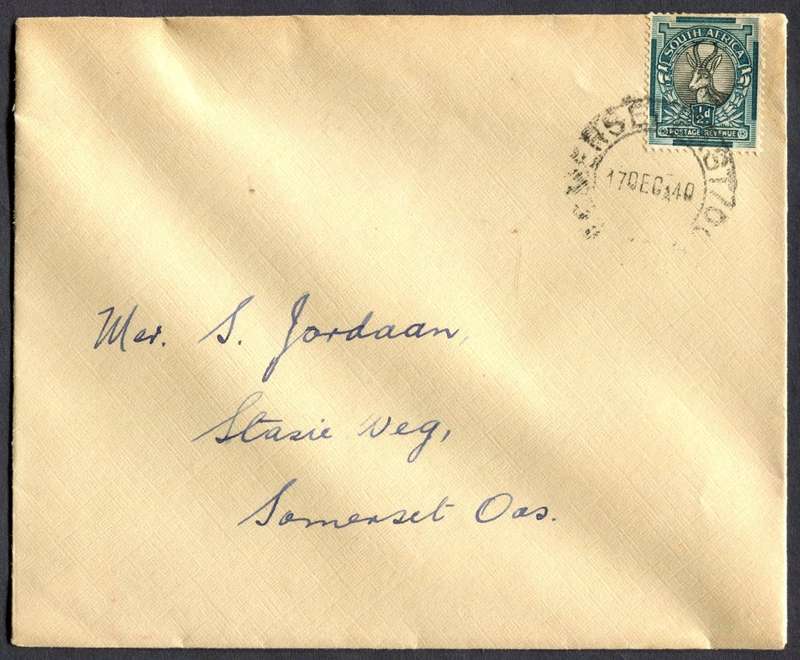 SOUTH AFRICA
½d
POSTAGE REVENUE
17 DEC 40
Mev. S. Jordaan,
Stasie Weg,
Somerset Oos.